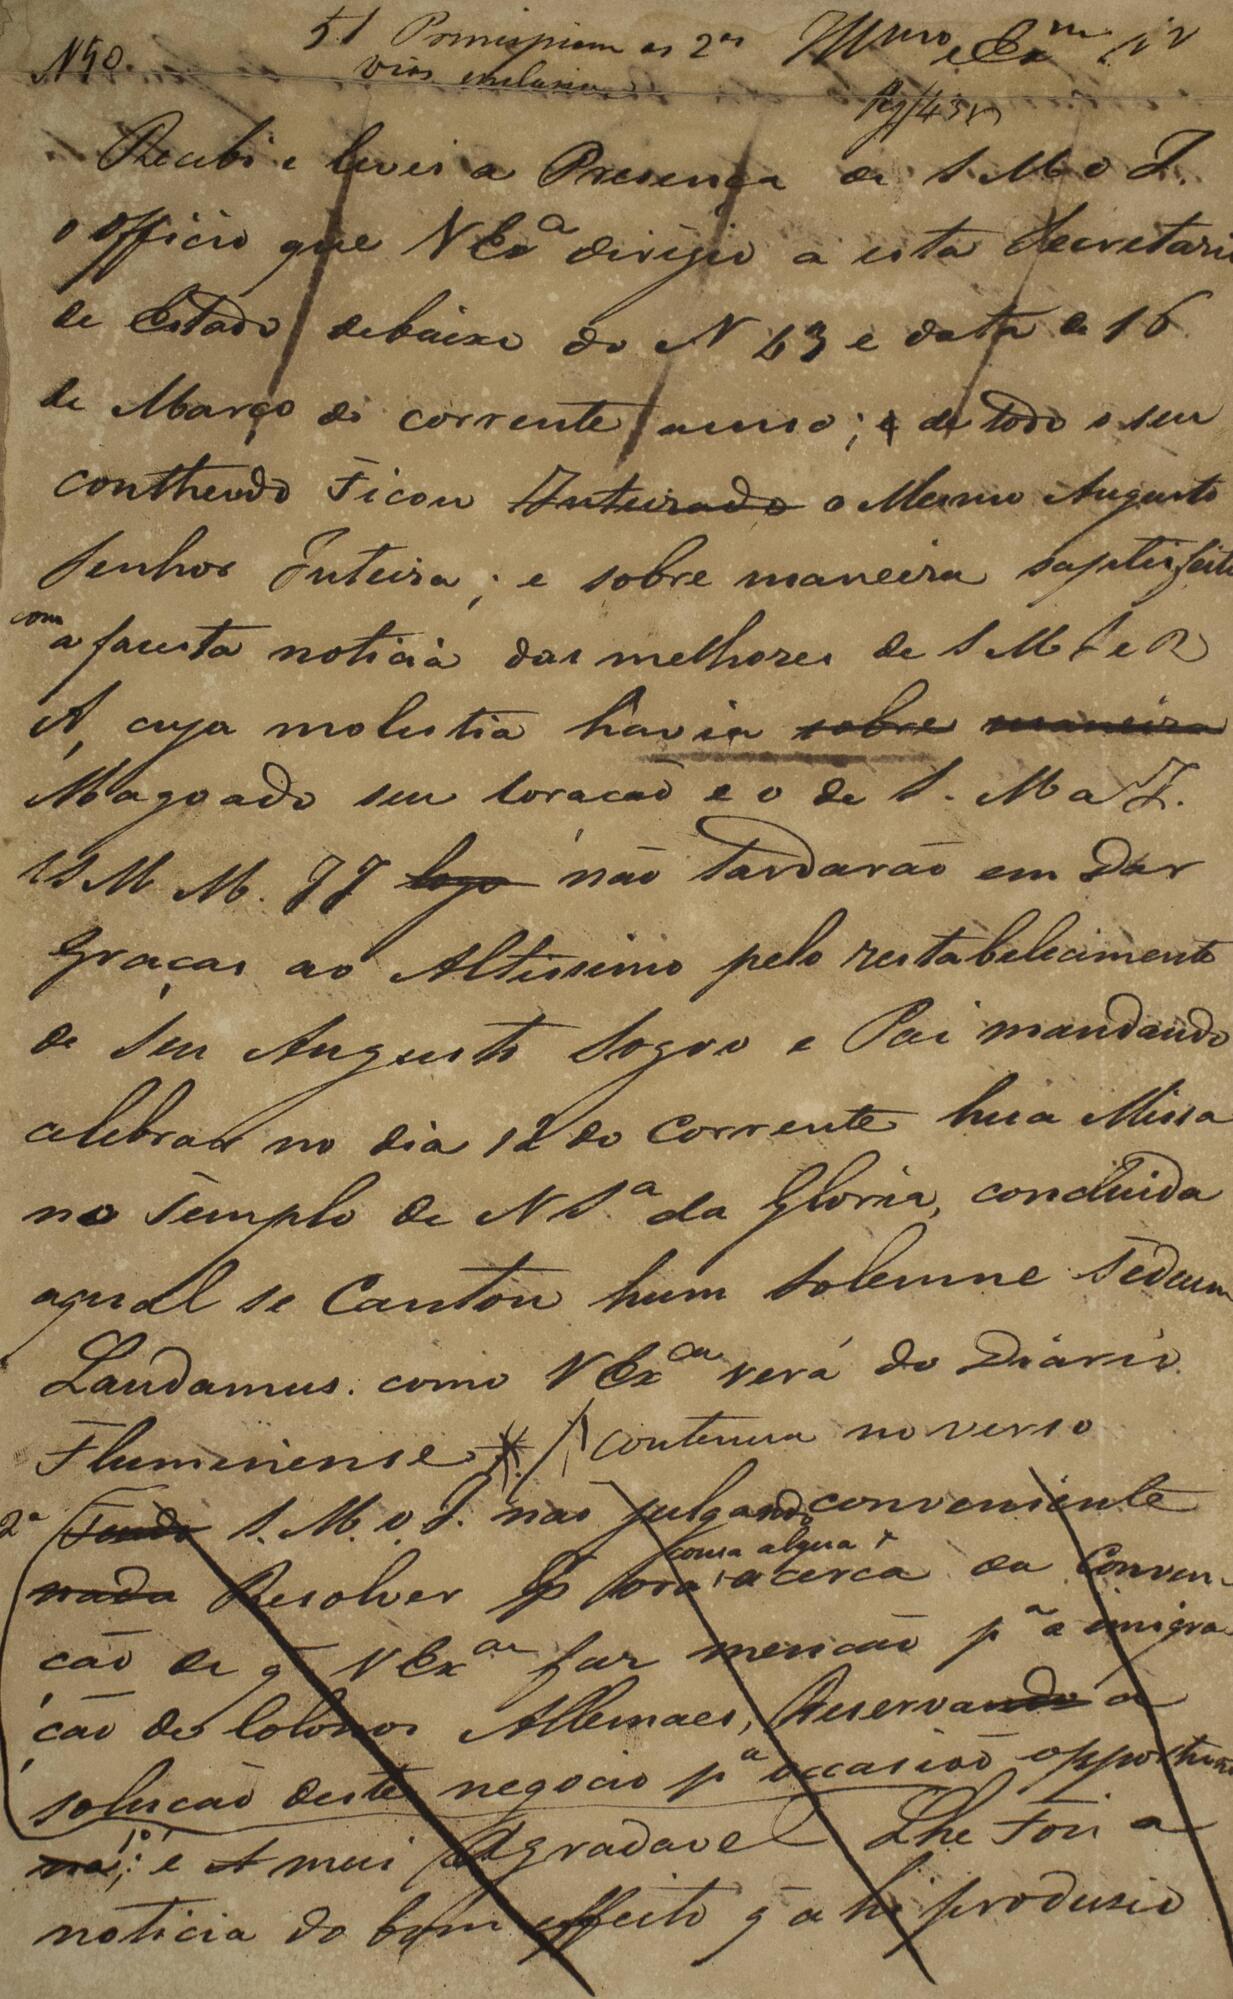 N 50.
51 Principiam as 2as Illmo e Exmo Sr
vias inclusive
Recebi e levei a Presença de S M o I.
o officio que V Exa dirigio a esta Secretaria
de Estado debaixo do N 43 e data de 16
de Março do corrente anno; e de todo o seu
contheudo Ficou Inteirado o Mesmo Augusto
Senhor Inteira; e sobre maneira satisfeito
com
a fausta noticia das melhoras de S M I e R
A, cuja molestia havia sobre maneira
Magoado seu Coração e o de S. M a I.
SS M M. JJ logo não Tardarão em Dar
Graças ao Altissimo pelo restabelecimento
de Seu Augusto Sogro e Pai mandando
celebrar no dia 12 do Corrente hua Missa
no Templo de N Sa da Gloria, concluida
aqual se Cantou hum Solemne Tedeum
Laudamus. como V Exca verá do Diario
Fluminense * / continua no verso
2a Tendo S. M. o I. não julgando conveniente
cousa algua
nada Resolver p ora acerca da Conven-
ção de q V Exca faz menção pa a emigra
ção de Colonos Allemaes, Reservando a
solução deste negocio pa occasião opportuna
na; 1o e A mui Agradavel Lhe Foi a
noticia do bom effeito q ahi produsio